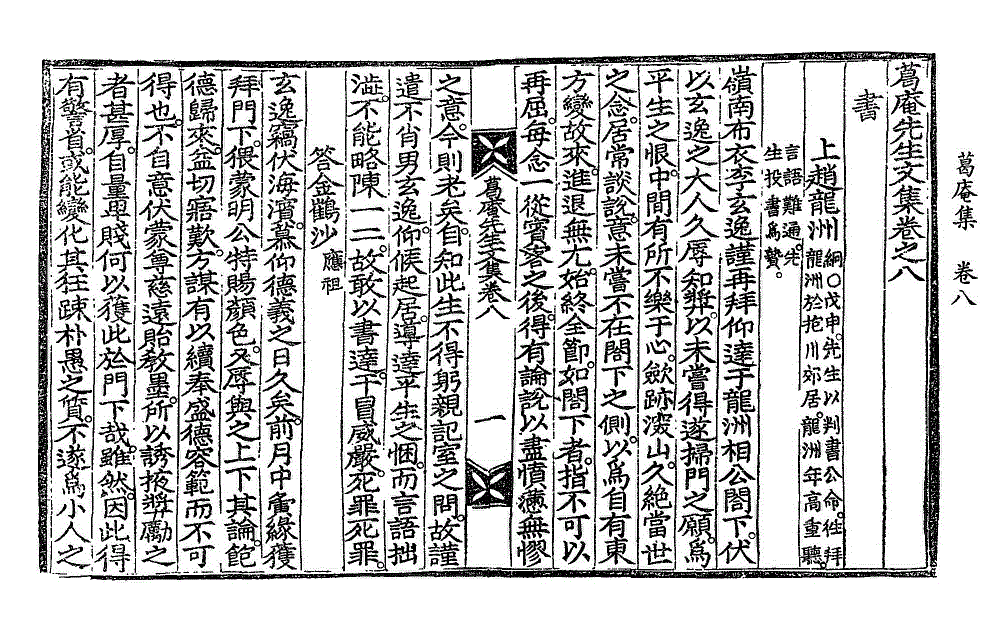 葛庵集　卷八
葛庵先生文集卷之八
書
上趙龍洲 絅○戊申先生以判書公命徃拜龍洲於抱川郊居龍洲年高重聽言語難通先生投書爲贄
嶺南布衣李玄逸謹再拜仰達于龍洲相公閤下伏
以玄逸之大人久辱知奬以未嘗得遂掃門之願爲
平生之恨中間有所不樂于心歛跡深山久絶當世
之念居常談說意未嘗不在閤下之側以爲自有東
方變故來進退無尤始終全節如閤下者指不可以
再屈每念一從賓客之後得有論說以盡憤懣無憀
葛庵先生文集卷八　一
之意今則老矣自知此生不得躬親記室之問故謹
遣不肖男玄逸仰候起居導達平生之悃而言語拙
澁不能略陳一二故敢以書達干冒威嚴死罪死罪
答金鶴沙 應祖
玄逸竊伏海濱慕仰德義之日久矣前月中夤緣獲
拜門下猥蒙明公特賜顔色又辱與之上下其論飽
德歸來益切寤歎方謀有以續奉盛德容範而不可
得也不自意伏蒙尊慈遠貽敎墨所以誘掖奬勵之
者甚厚自量卑賤何以獲此於門下哉雖然因此得
有警省或能變化其狂疎朴愚之質不遂爲小人之